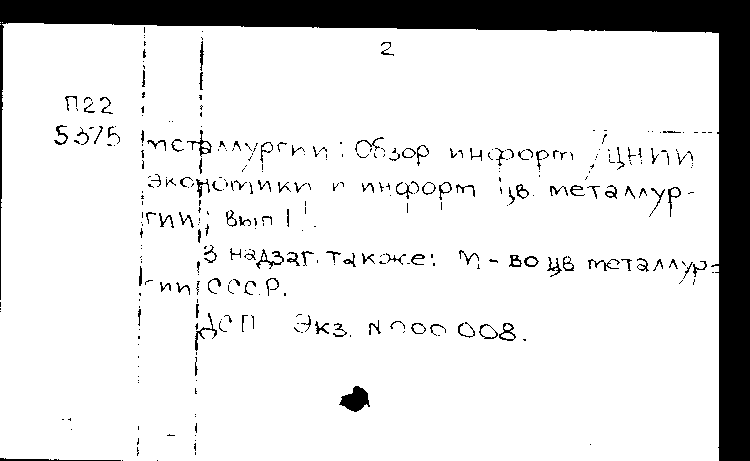 2
П22
5375
металлургии: Обзор информ /ЦНИИ
экономики и информ цв. металлур-
гии; Вып 1).
В надзаг. также: М-во цв металлур-
гии СССР.
ДСП Экз. N 000 008.